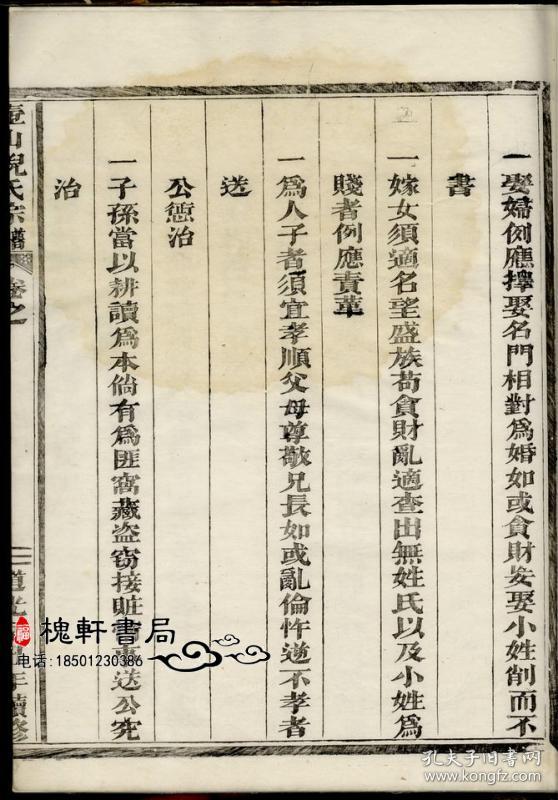 一娶婦例應擇娶名門相對爲婚如或貪財妄娶小姓削而不
書
一嫁女須適名望盛族苟貪財亂適查出無姓氏以及小姓爲
賤者例應責革
一爲人子者須宜孝順父母尊敬兄長如或亂倫忤逆不孝者
送
公懲治
一子孫當以耕讀爲本倘有爲匪窩藏盜竊接賍送公究
治
壺山倪氏宗譜
卷之
二
道光年續修
槐軒書局
电话:18501230386
福
孔夫子旧书网
www.kongfz.com